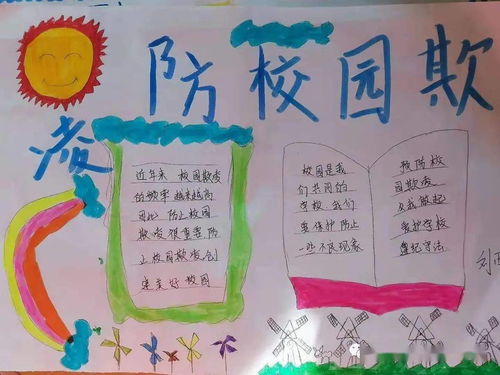 防校园欺
凌
近年来 校园欺凌
的频率越来越高
因此 防止校园
欺凌很重要防
止校园欺凌创
建美好校园
校园是我
们共同的
学校 我们
要保护防止
一些不良现象
预防校
园欺凌
从我做起
爱护学校
遵纪守法
刘